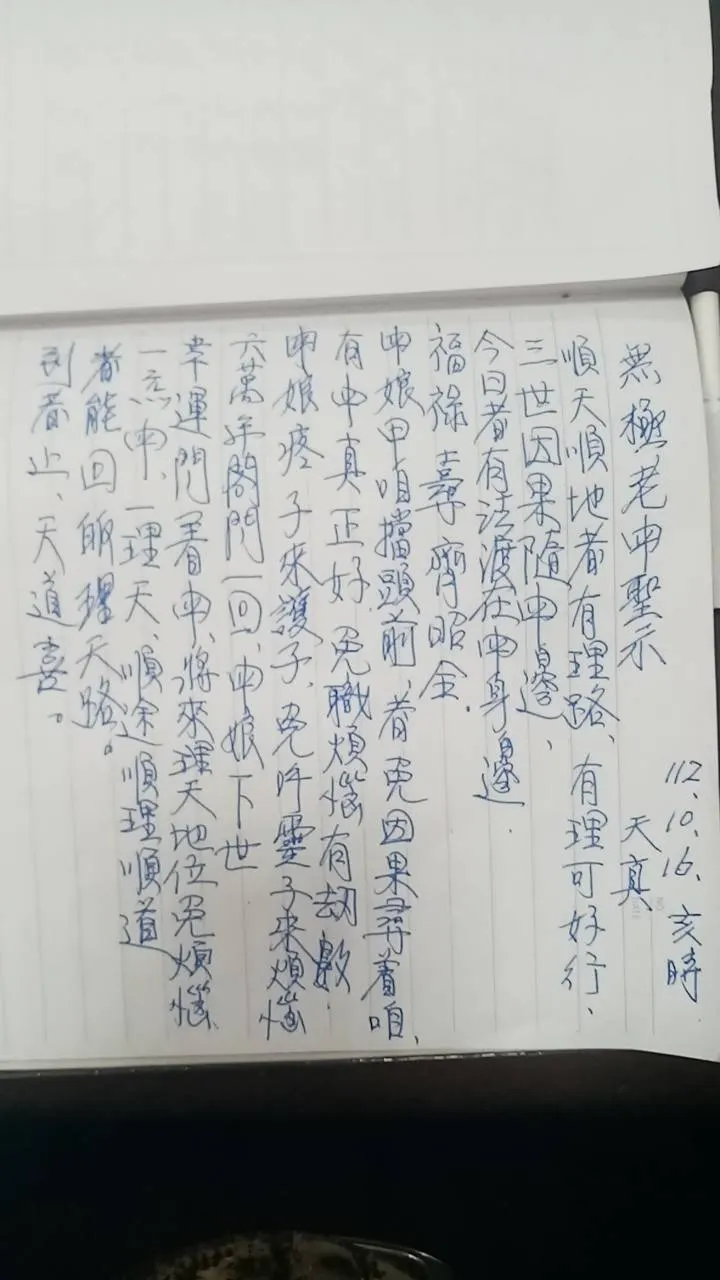 112、10、16、亥時
無極老申聖示 天真
順天順地者有理路、有理可好行、
三世因果隨申邊、
今日者有法渡在申身邊.
福祿壽齊昭全.
申娘甲咱擋頭前、者免因果尋着咱、
有申真正好免職煩惱有劫數.
申娘疼子來護子、免吓靈子來煩惱
六萬年閣門一回、申娘下世
幸運門着申、將來理天地位免煩惱、
一点申、一理天、順途順理順道
者能回皈理天路。
到者止、天道喜。